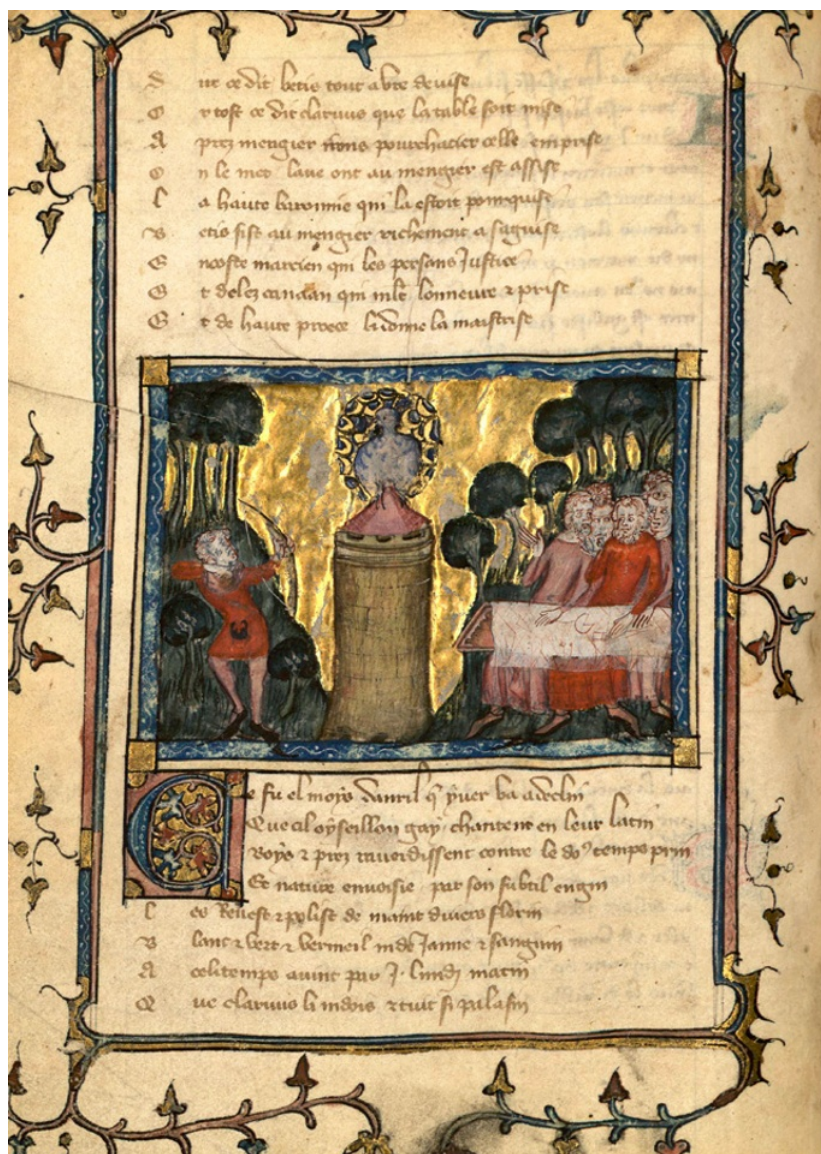 D ut ce dit betis tout a vre devise
O r tost ce dit clarvus que la table soit mise
A prez mengier irons pourchacier celle emprise
O n le met lave ont au mengier est assise
L a haute baronnie qui la estoit pourquise
B etis sist au mengier richement a sa guise
E ncoste marcien qui les persans justice
E t delez candaan qui mlt lonneure & prise
E t de haute proece li donne la maistrise
Ce fu el moys davril q yver va a declin
Que cil oyseillon gay chantent en leur latin
Boys & prez raverdissent contre le do temps prin
Et nature envoisie par son subtil engin
L es Revest & polist de maint divers florin
B lanc & vert & vermeil inde jaune & sanguin
A cel temps avint par .I. lundi matin
Q ue clarvus li indois & tuit si palasin